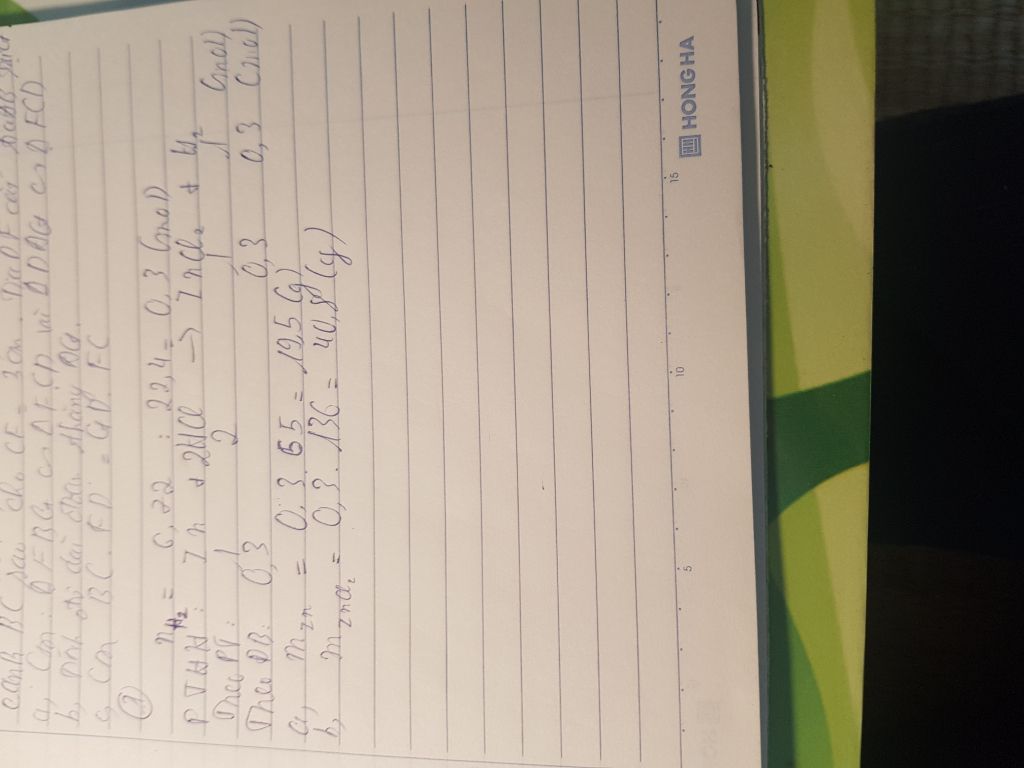 cạnh BC sao cho CF = 3cm. Tia DF cắt
a, Cm: Δ FBG ∽ Δ FCD và Δ DAG ∽ Δ FCD
b, Tính độ dài đoạn thẳng AG.
c, Cm BC. FD = GD. FC
②
nH₂ = 6,72 : 22,4 = 0,3 (mol)
PTHH: Zn + 2HCl → ZnCl₂ + H₂
Theo PT: 1 2 1 1 (mol)
Theo ĐB: 0,3 0,3 0,3 (mol)
a, mZn = 0,3. 65 = 19,5 (g)
b, mZnCl₂ = 0,3. 136 = 40,8 (g)
5 10 15
HONG HA